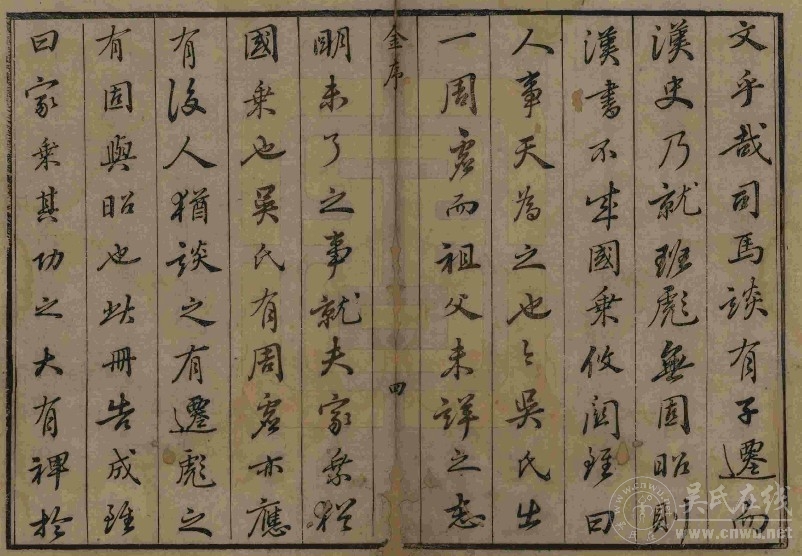 文乎哉司馬談有子遷而
漢史乃就班彪無固昭則
漢書不成國乘攸關雖曰
人事天為之也今吳氏出
一周而祖父未詳之志
金序
四
明未了之事就夫家乘猶
國乘也吳氏有周亦應
有後人猶談之有遷彪之
有固與昭也此冊告成雖
曰家乘其功之大有裨於
吴氏在线
www.cnwu.net